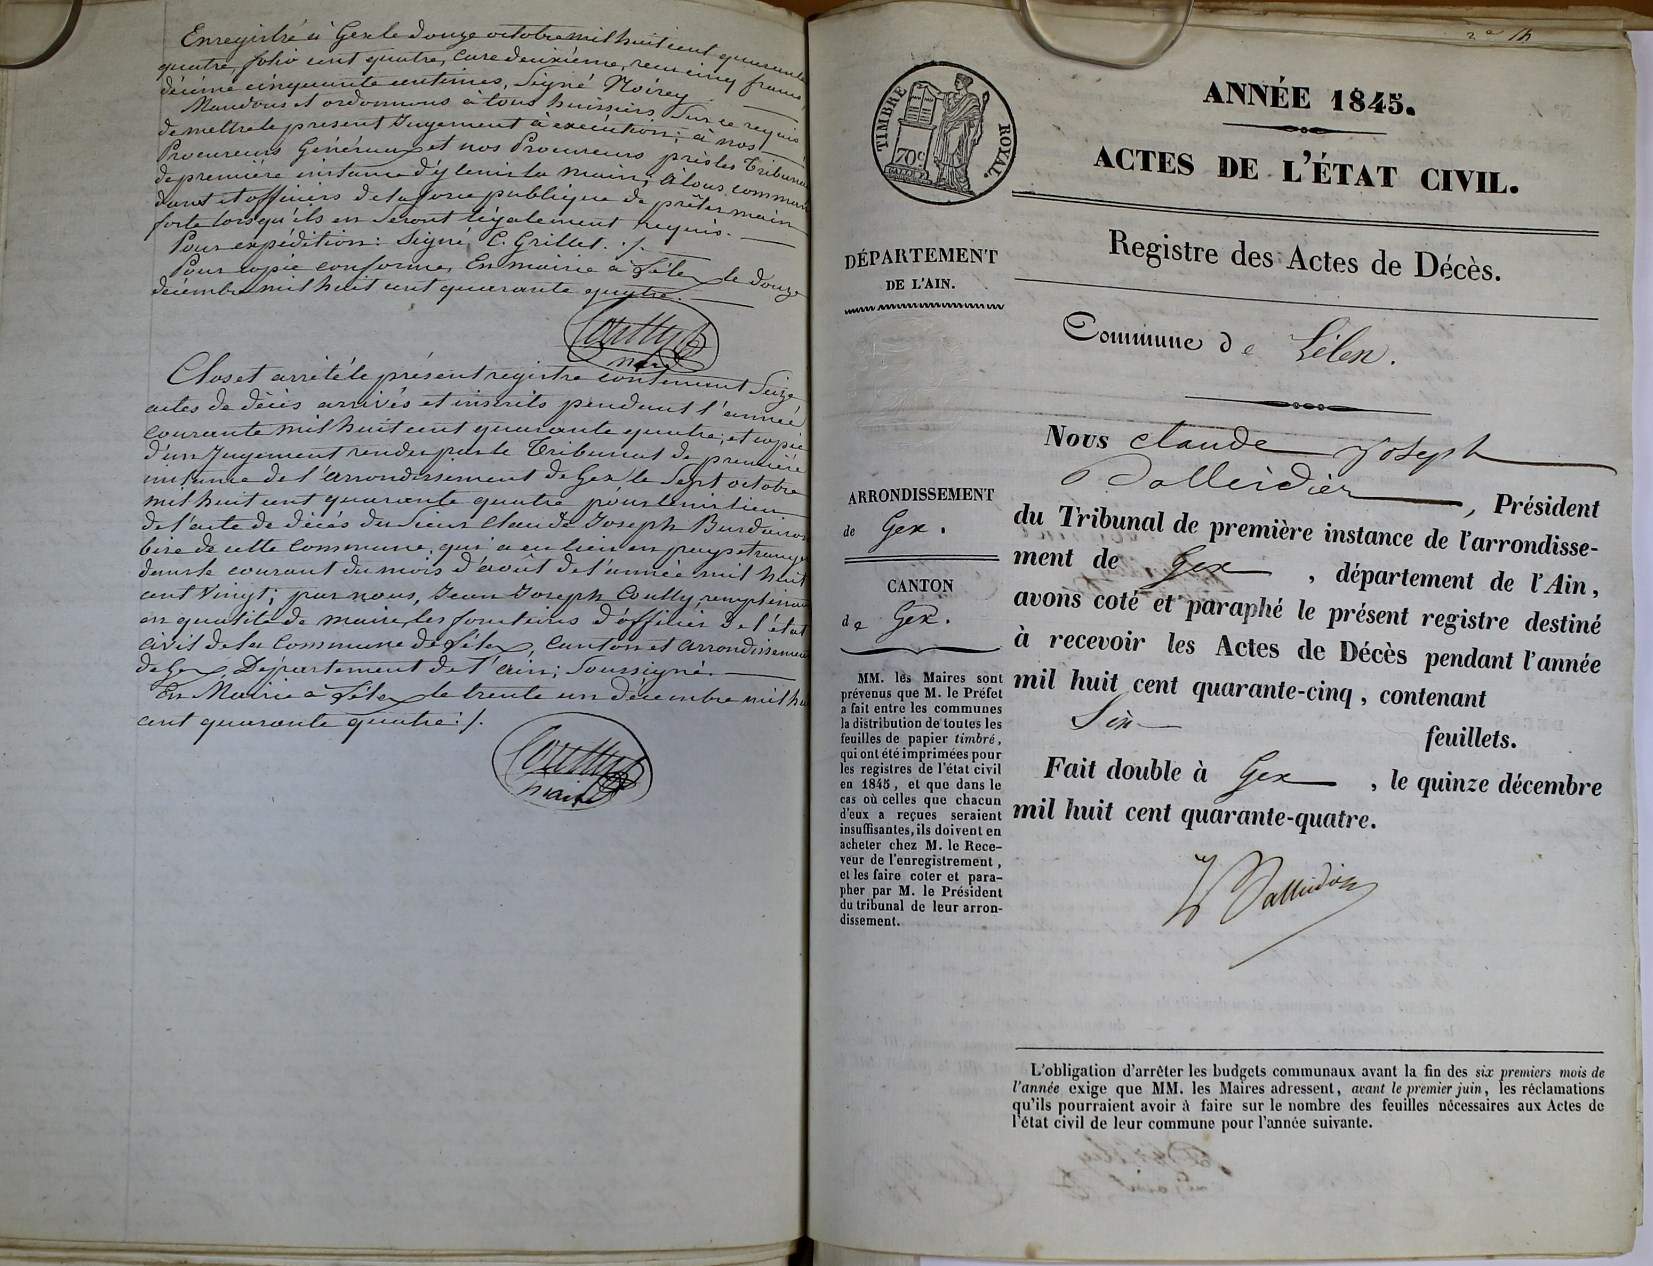 Enregistré à Gex le douze octobre mil huit cent quarante
quatre, folio cent quatre, case deuxième, reçu cinq francs,
décime cinquante centimes, Signé Noirey
Mandons et ordonnons à tous huissiers Sur ce requis
de mettre le présent Jugement à exécution; à nos
Procureurs Généraux et nos Procureurs près les Tribunaux
de première instance d'y tenir la main; à tous comman
dants et officiers de la force publique de prêter main
forte lorsqu'ils en Seront légalement requis.
Pour expédition: Signé, C. Grillet. ./.
Pour copie conforme, En mairie à Lélex le douze
décembre mil huit cent quarante quatre.
Coutty
maire
Clos et arrêté le présent registre contenant Seize
actes de décès arrivés et inscrits pendant l'année
courante mil huit cent quarante quatre; et copie
d'un Jugement rendu par le Tribunal de première
instance de l'arrondissement de Gex le Sept octobre
mil huit cent quarante quatre pour tenir lieu
de l'acte de décès du Sieur Claude Joseph
de cette commune, qui a eu lieu en pays étranger
dans le courant du mois d'août de l'année mil huit
cent vingt; par nous, Jean Joseph Coutty, remplissant
en qualité de maire, les fonctions d'officier de l'état
civil de la commune de Lélex, canton et arrondissement
de Gex, Département de l'ain; Soussigné.
En Mairie à Lélex le trente un décembre mil hu
cent quarante quatre ./.
Coutty
maire
TIMBRE ROYAL.
70c
ANNÉE 1845.
ACTES DE L'ÉTAT CIVIL.
DÉPARTEMENT
DE L'AIN.
Registre des Actes de Décès.
Commune de Lélex.
ARRONDISSEMENT
de Gex.
CANTON
de Gex.
MM. les Maires sont
prévenus que M. le Préfet
a fait entre les communes
la distribution de toutes les
feuilles de papier timbré,
qui ont été imprimées pour
les registres de l'état civil
en 1845, et que dans le
cas où celles que chacun
d'eux a reçues seraient
insuffisantes, ils doivent en
acheter chez M. le Rece-
veur de l'enregistrement,
et les faire coter et para-
pher par M. le Président
du tribunal de leur arron-
dissement.
Nous Claude Joseph
, Président
du Tribunal de première instance de l'arrondisse-
ment de Gex, département de l'Ain,
avons coté et paraphé le présent registre destiné
à recevoir les Actes de Décès pendant l'année
mil huit cent quarante-cinq, contenant
Six
feuillets.
Fait double à Gex, le quinze décembre
mil huit cent quarante-quatre.
L'obligation d'arrêter les budgets communaux avant la fin des six premiers mois de
l'année exige que MM. les Maires adressent, avant le premier juin, les réclamations
qu'ils pourraient avoir à faire sur le nombre des feuilles nécessaires aux Actes de
l'état civil de leur commune pour l'année suivante.